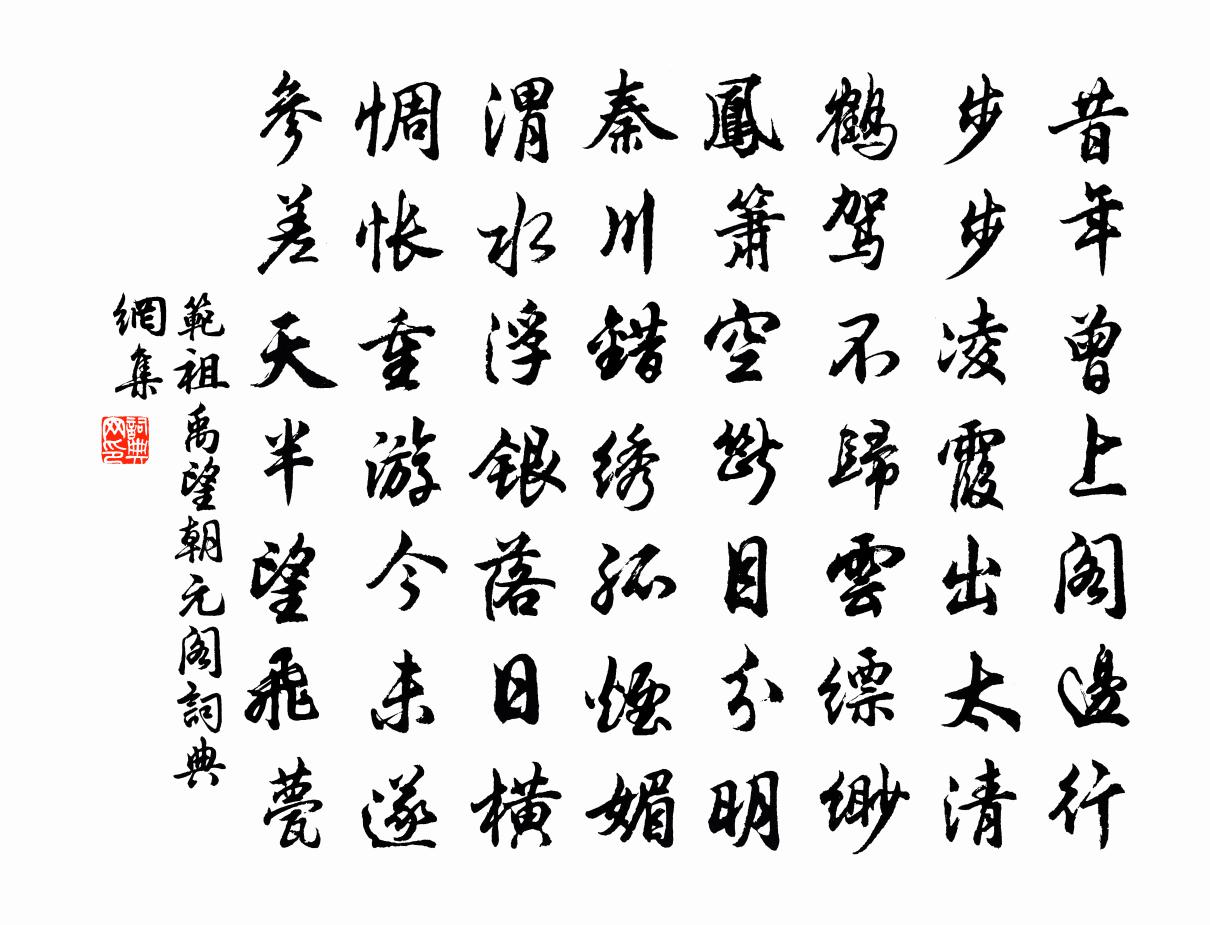 昔年曾上阁邊行
步步凌霞出太清
鶴駕不歸雲縹緲
鳳簫空斷目分明
秦川錯綉孤煙媚
渭水浮銀落日橫
惆怅重游今未遂
參差天半望飛甍
範祖禹望朝元阁詞典
網集
詞典
网印